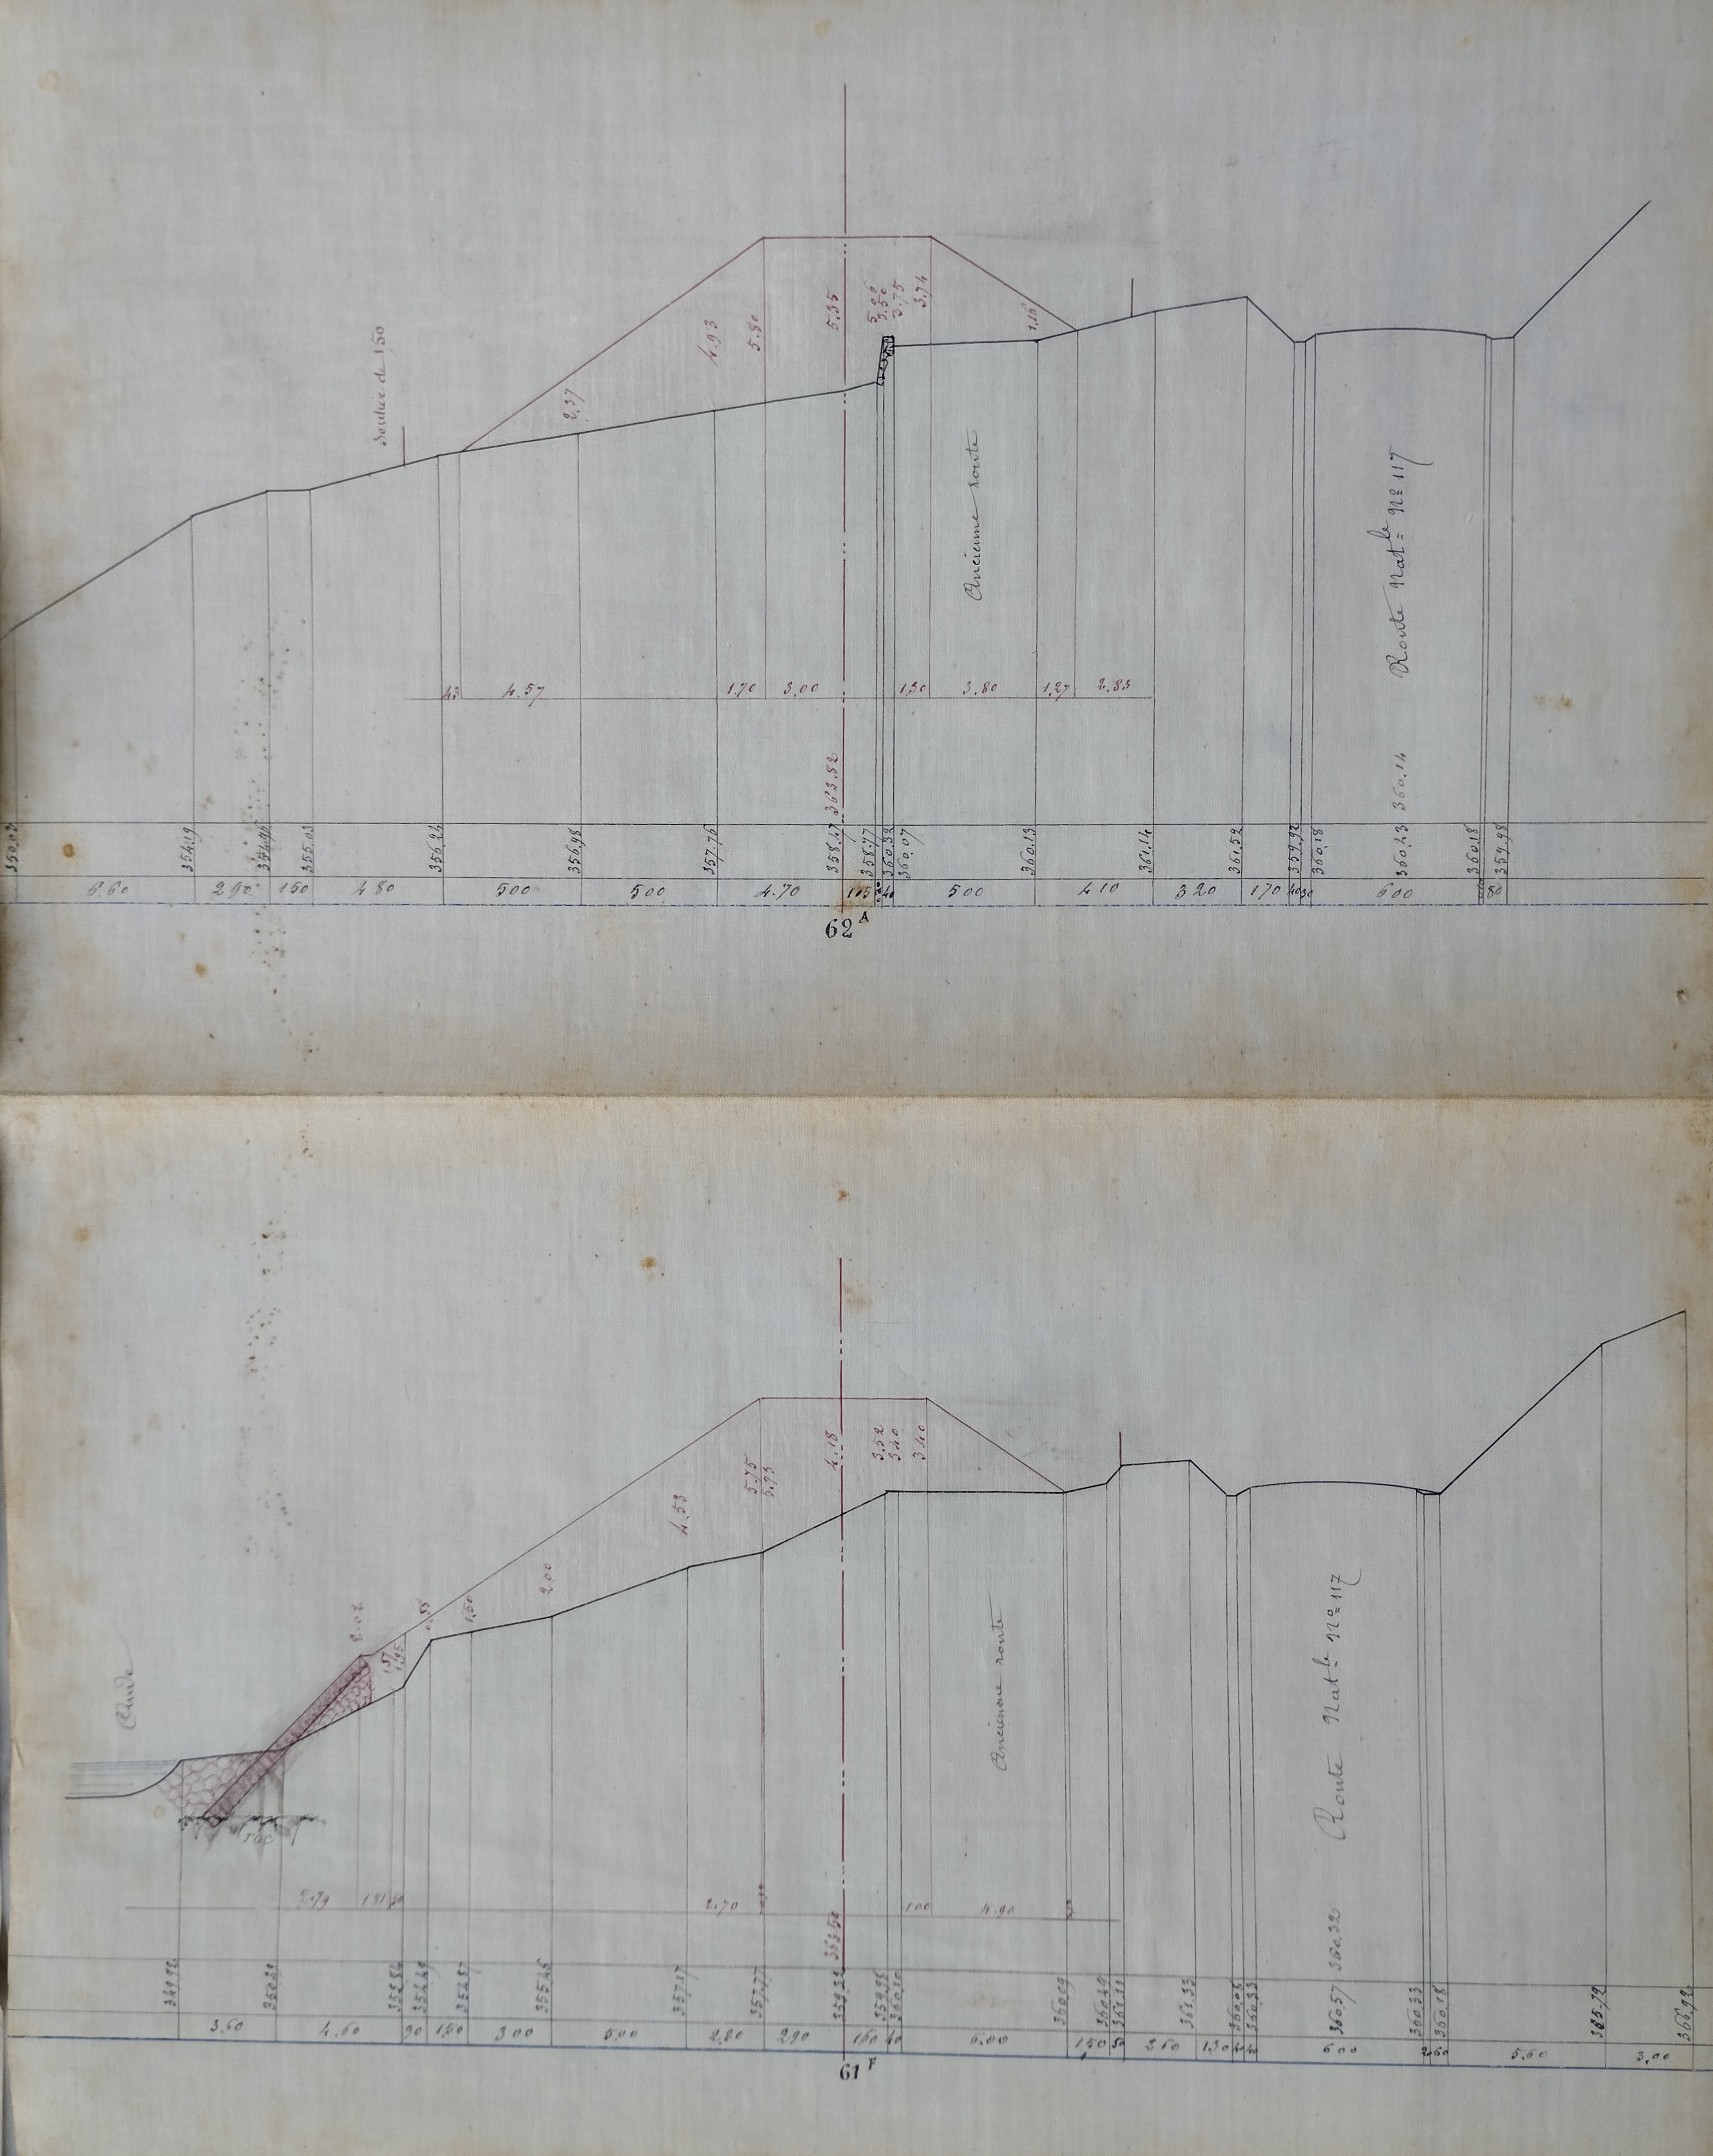 Sentier de 1,50
2.37
4.93
5.35
3.50
3.75
3.74
1.16
Ancienne route
Route Nat.le N.º 117
43 4.57 1.70 3.00 1.30 3.80 1.27 2.83
363.52
360.14
350.02 354.19 354.96 355.03 356.24 356.98 357.76 358.47 358.77 360.39 360.07 360.13 361.14 361.59 359.92 360.18 360.43 360.18 359.98
6.60 2.90 1.50 4.80 5.00 5.00 4.70 1.15 40 5.00 4.10 3.20 1.70 40 30 6.00 80
62 A
4.18
3.52
3.40
3.40
5.75
5.73
4.53
2.00
1.50
0.88
2.02
1.95
Aude
roc
Ancienne route
Route Nat.le N.º 117
2.79 1.81 2.70 1.00 4.90
363.50
360.32
349.98 350.39 357.37 357.77 359.32 359.98 360.10 360.09 360.49 361.11 361.33 360.33 360.57 360.33 360.18 365.72 366.92
3.60 4.60 90 1.50 3.00 5.00 2.80 2.90 1.60 40 6.00 1.50 50 2.60 1.30 40 40 6.00 20 60 5.60 3.00
61 F